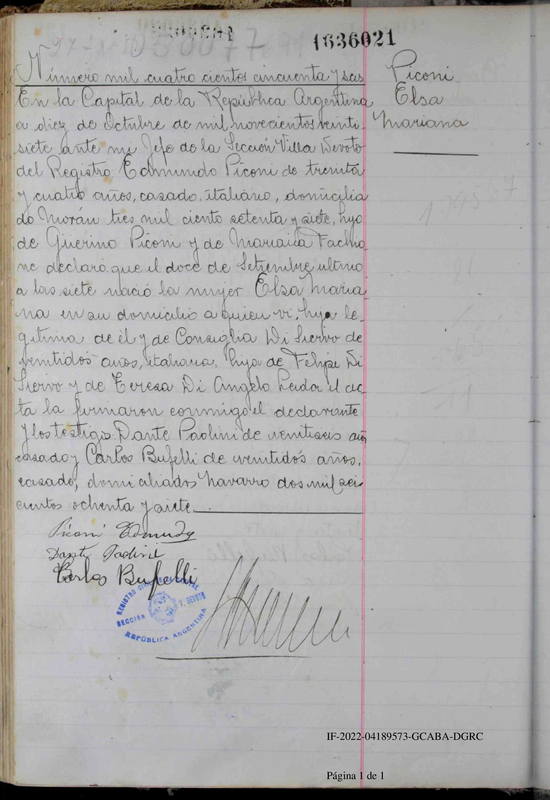 1636021
Número mil cuatro cientos cincuenta y seis
Piconi
Elsa
Mariana
En la Capital de la República Argentina
a diez de Octubre de mil novecientos veinti-
siete ante mi Jefe de la Sección Villa Devoto
del Registro Edmundo Piconi de treinta
y cuatro años, casado, italiano, domicilia
do Morán tres mil ciento setenta y siete, hijo
de Guerino Piconi y de Mariana
ne declaró que el doce de Setiembre último
a las siete nació la mujer Elsa Maria
na en su domicilio a quien vi, hija le-
gitima de él y de Consiglia Di Siervo de
veintidos años, italiana, hija de Felipe Di
Siervo y de Teresa Di Angelo Leida el ac-
ta la firmaron conmigo el declarante
y los testigos Dante Paolini de veintiseis años
casado y Carlos Bufelli de veintidos años,
casado, domiciliados Navarro dos mil sei
cientos ochenta y siete
Piconi Edmundo
Dante Paolini
Carlos Bufelli
REGISTRO CIVIL
SECCION V. DEVOTO
REPÚBLICA ARGENTINA
IF-2022-04189573-GCABA-DGRC
Página 1 de 1